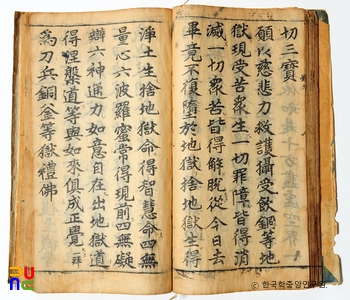 切三寶
願以慈悲力救護攝受飮銅等地
獄現受苦衆生一切罪障皆得消
滅一切衆苦皆得解脫從今日去
畢竟不復墮於地獄捨地獄生得
淨土生捨地獄命得智慧命四無
量心六波羅蜜常得現前四無礙
辯六神通力如意自在出地獄道
得涅槃道等與如來俱成正覺一拜
為刀兵銅釜等獄禮佛
© 한국학중앙연구원